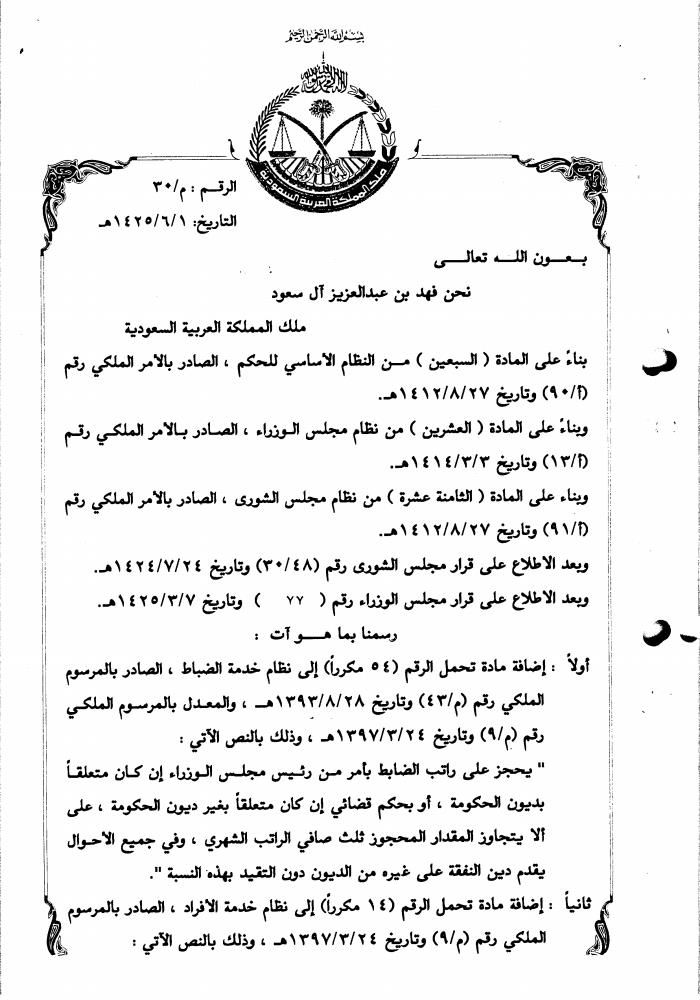 بسم الله الرحمن الرحيم
لا إله إلا الله محمد رسول الله
ملك المملكة العربية السعودية
الرقم : م/٣٠
التاريخ: ١٤٢٥/٦/١هـ
بعون الله تعالى
نحن فهد بن عبدالعزيز آل سعود
ملك المملكة العربية السعودية
بناءً على المادة ( السبعين ) من النظام الأساسي للحكم ، الصادر بالأمر الملكي رقم
(أ/٩٠) وتاريخ ١٤١٢/٨/٢٧هـ.
وبناءً على المادة ( العشرين ) من نظام مجلس الوزراء ، الصادر بالأمر الملكي رقم
(أ/١٣) وتاريخ ١٤١٤/٣/٣هـ.
وبناء على المادة ( الثامنة عشرة ) من نظام مجلس الشورى ، الصادر بالأمر الملكي رقم
(أ/٩١) وتاريخ ١٤١٢/٨/٢٧هـ.
وبعد الاطلاع على قرار مجلس الشورى رقم (٣٠/٤٨) وتاريخ ١٤٢٤/٧/٢٤هـ.
وبعد الاطلاع على قرار مجلس الوزراء رقم ( ٧٧ ) وتاريخ ١٤٢٥/٣/٧هـ.
رسمنا بما هو آت :
أولاً : إضافة مادة تحمل الرقم (٥٤ مكرراً) إلى نظام خدمة الضباط ، الصادر بالمرسوم
الملكي رقم (م/٤٣) وتاريخ ١٣٩٣/٨/٢٨هـ ، والمعدل بالمرسوم الملكي
رقم (م/٩) وتاريخ ١٣٩٧/٣/٢٤هـ ، وذلك بالنص الآتي :
" يحجز على راتب الضابط بأمر من رئيس مجلس الوزراء إن كان متعلقاً
بديون الحكومة ، أو بحكم قضائي إن كان متعلقاً بغير ديون الحكومة ، على
ألا يتجاوز المقدار المحجوز ثلث صافي الراتب الشهري ، وفي جميع الأحوال
يقدم دين النفقة على غيره من الديون دون التقيد بهذه النسبة ".
ثانياً : إضافة مادة تحمل الرقم (١٤ مكرراً) إلى نظام خدمة الأفراد ، الصادر بالمرسوم
الملكي رقم (م/٩) وتاريخ ١٣٩٧/٣/٢٤هـ ، وذلك بالنص الآتي :